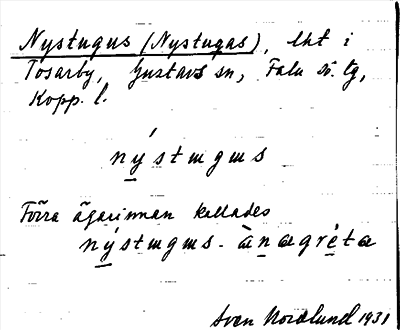 Nystugus (Nystugas), lht i
Tosarby, Gustavs sn, Falu s. tg,
Kopp. l.
nýstɯgɯs
Förra ägarinnan kallades
nýstɯgɯs-ànagréta
Sven Nordlund 1931